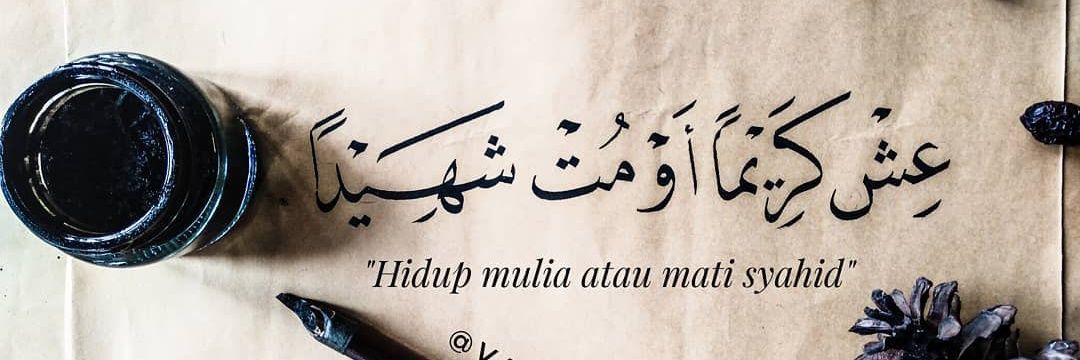 عِشْ كَرِيْمًا أَوْ مُتْ شَهِيْدًا
"Hidup mulia atau mati syahid"